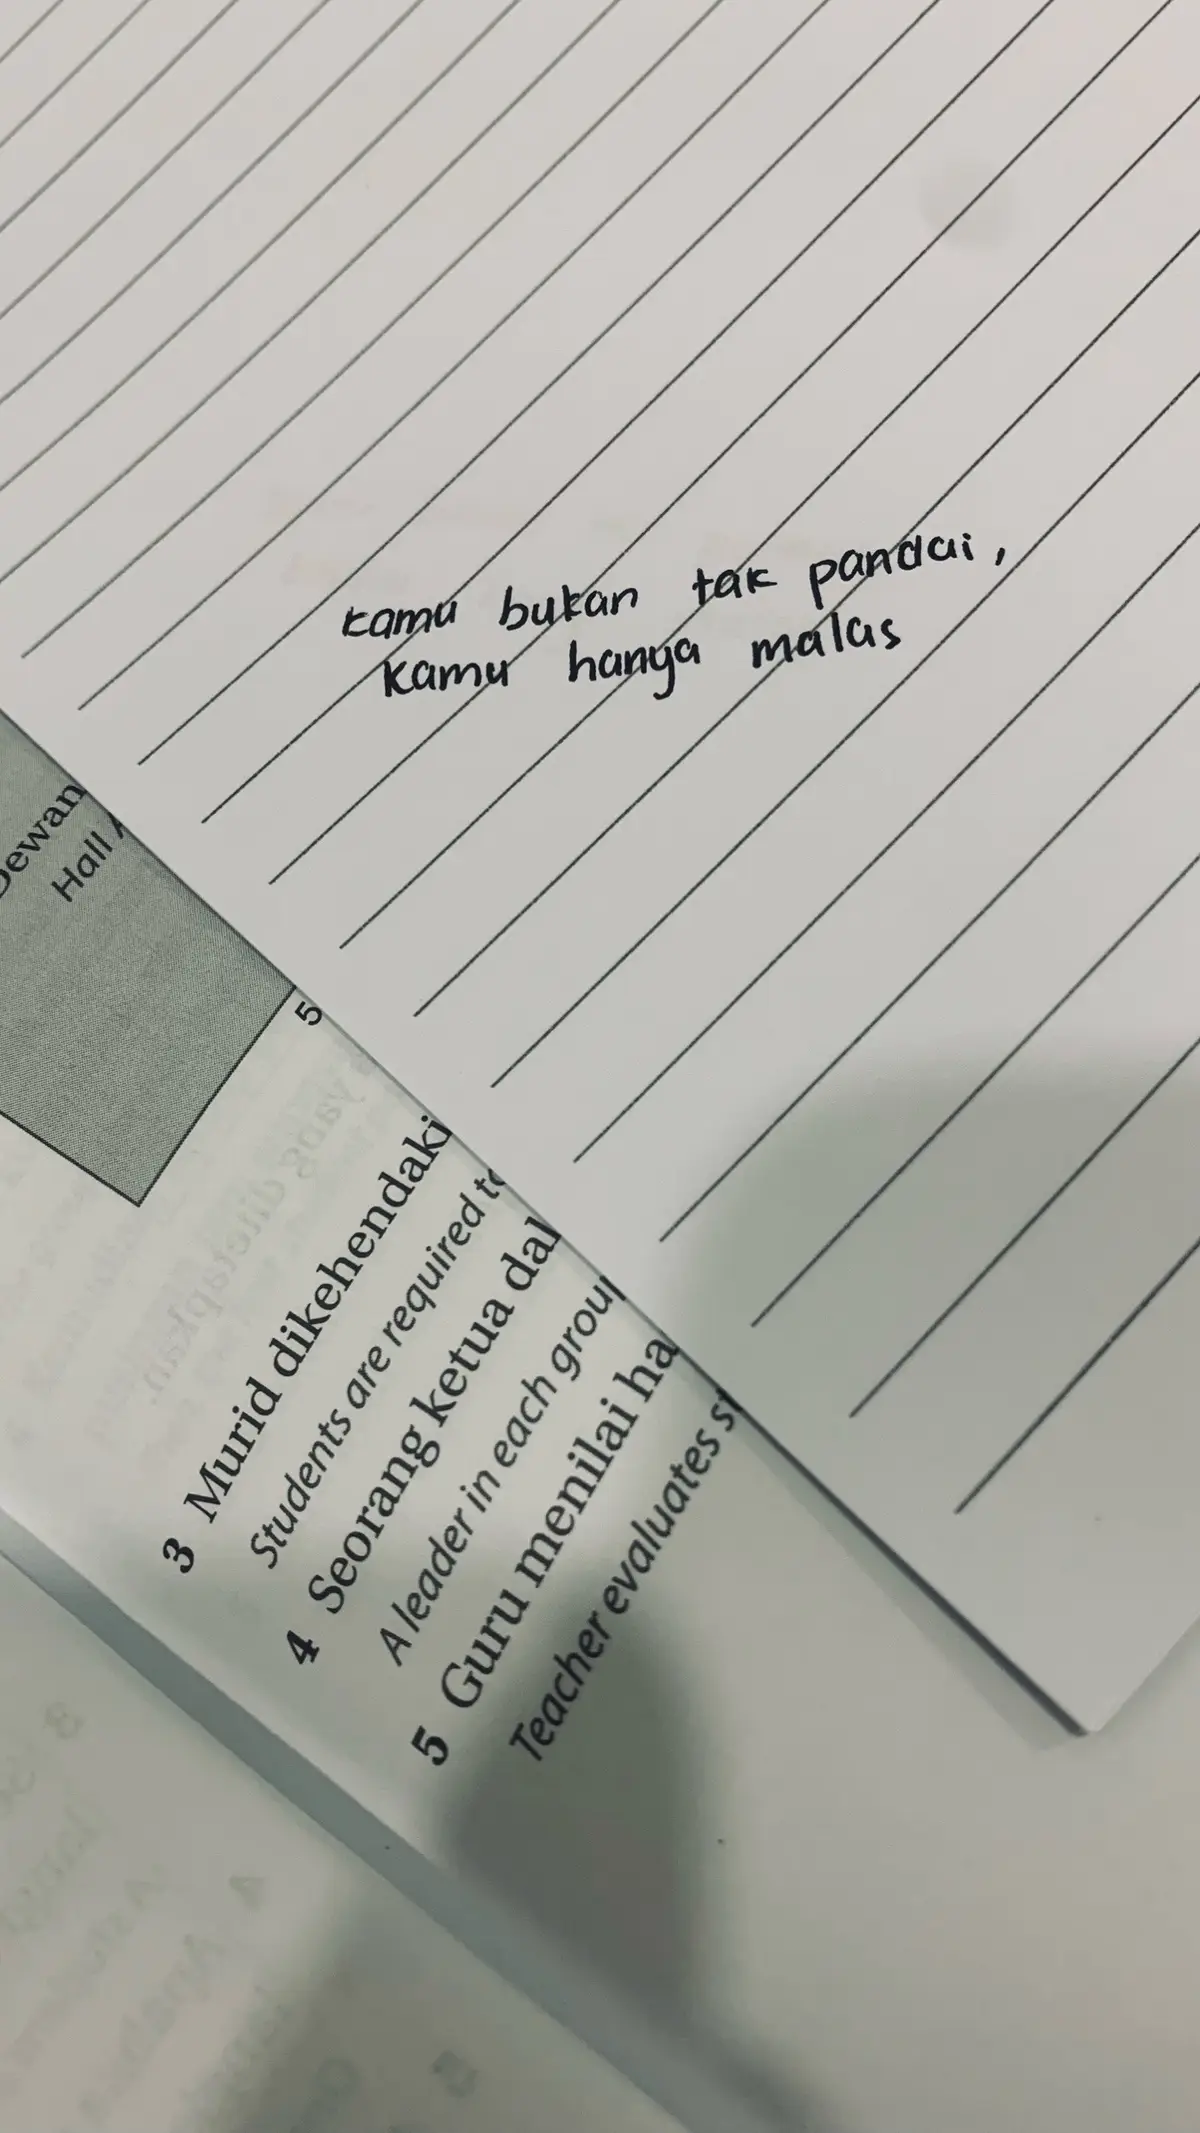 kamu bukan tak pandai,
kamu hanya malas
Dewan
Hall
5
3 Murid dikehendaki
Students are required to
4 Seorang ketua dal
A leader in each group
5 Guru menilai ha
Teacher evaluates st